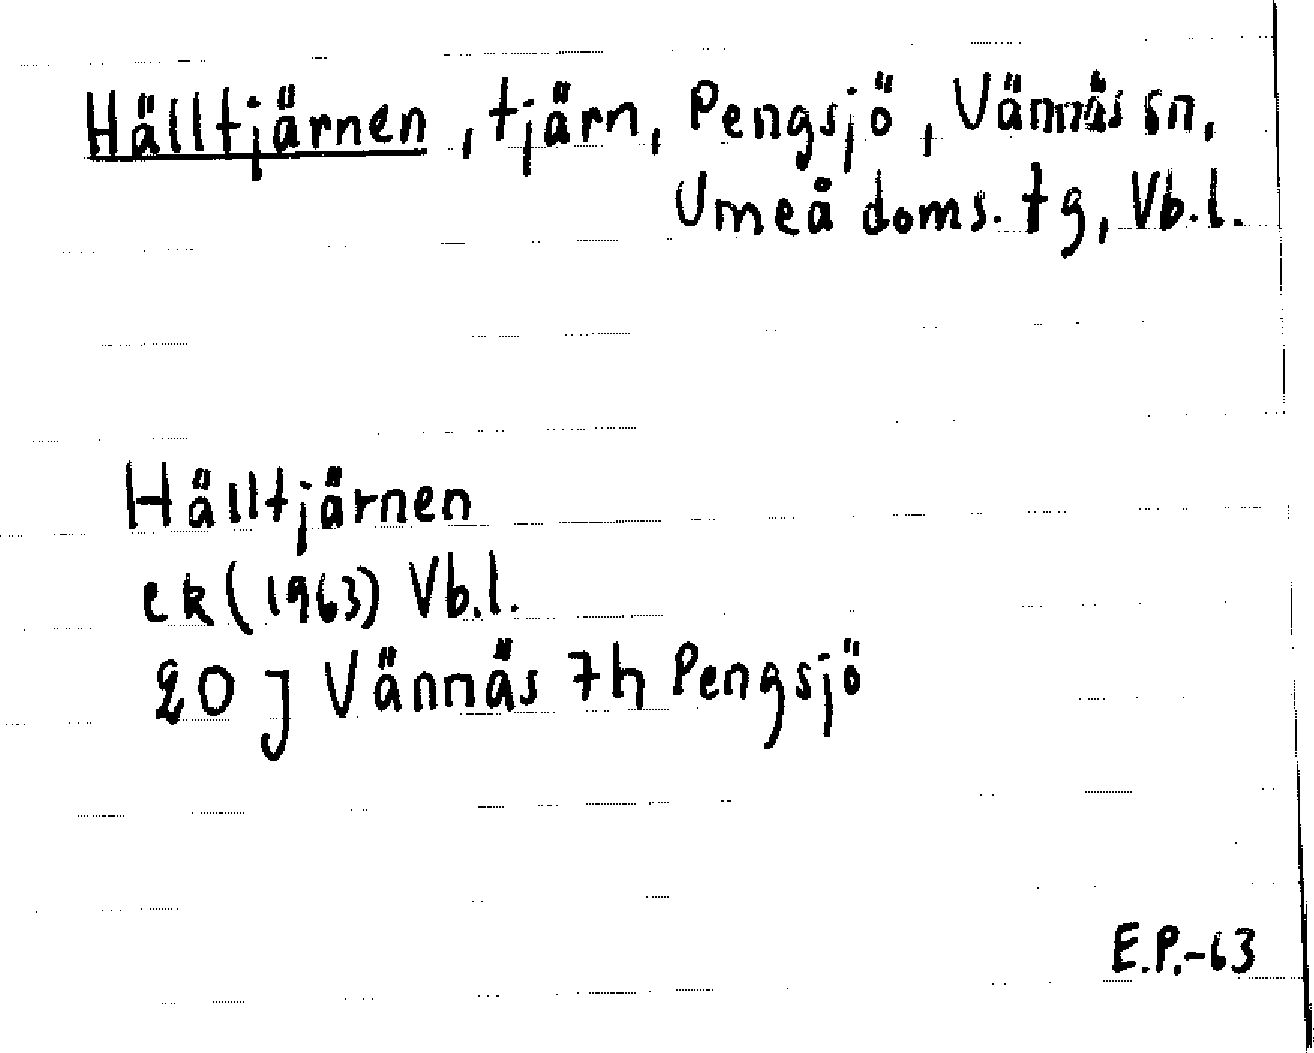 Hälltjärnen, tjärn, Pengsjö, Vännäs sn,
Umeå doms. tg, Vb.l.
Hälltjärnen
ek (1963) Vb.l.
20 J Vännäs 7h Pengsjö
E.P.-63